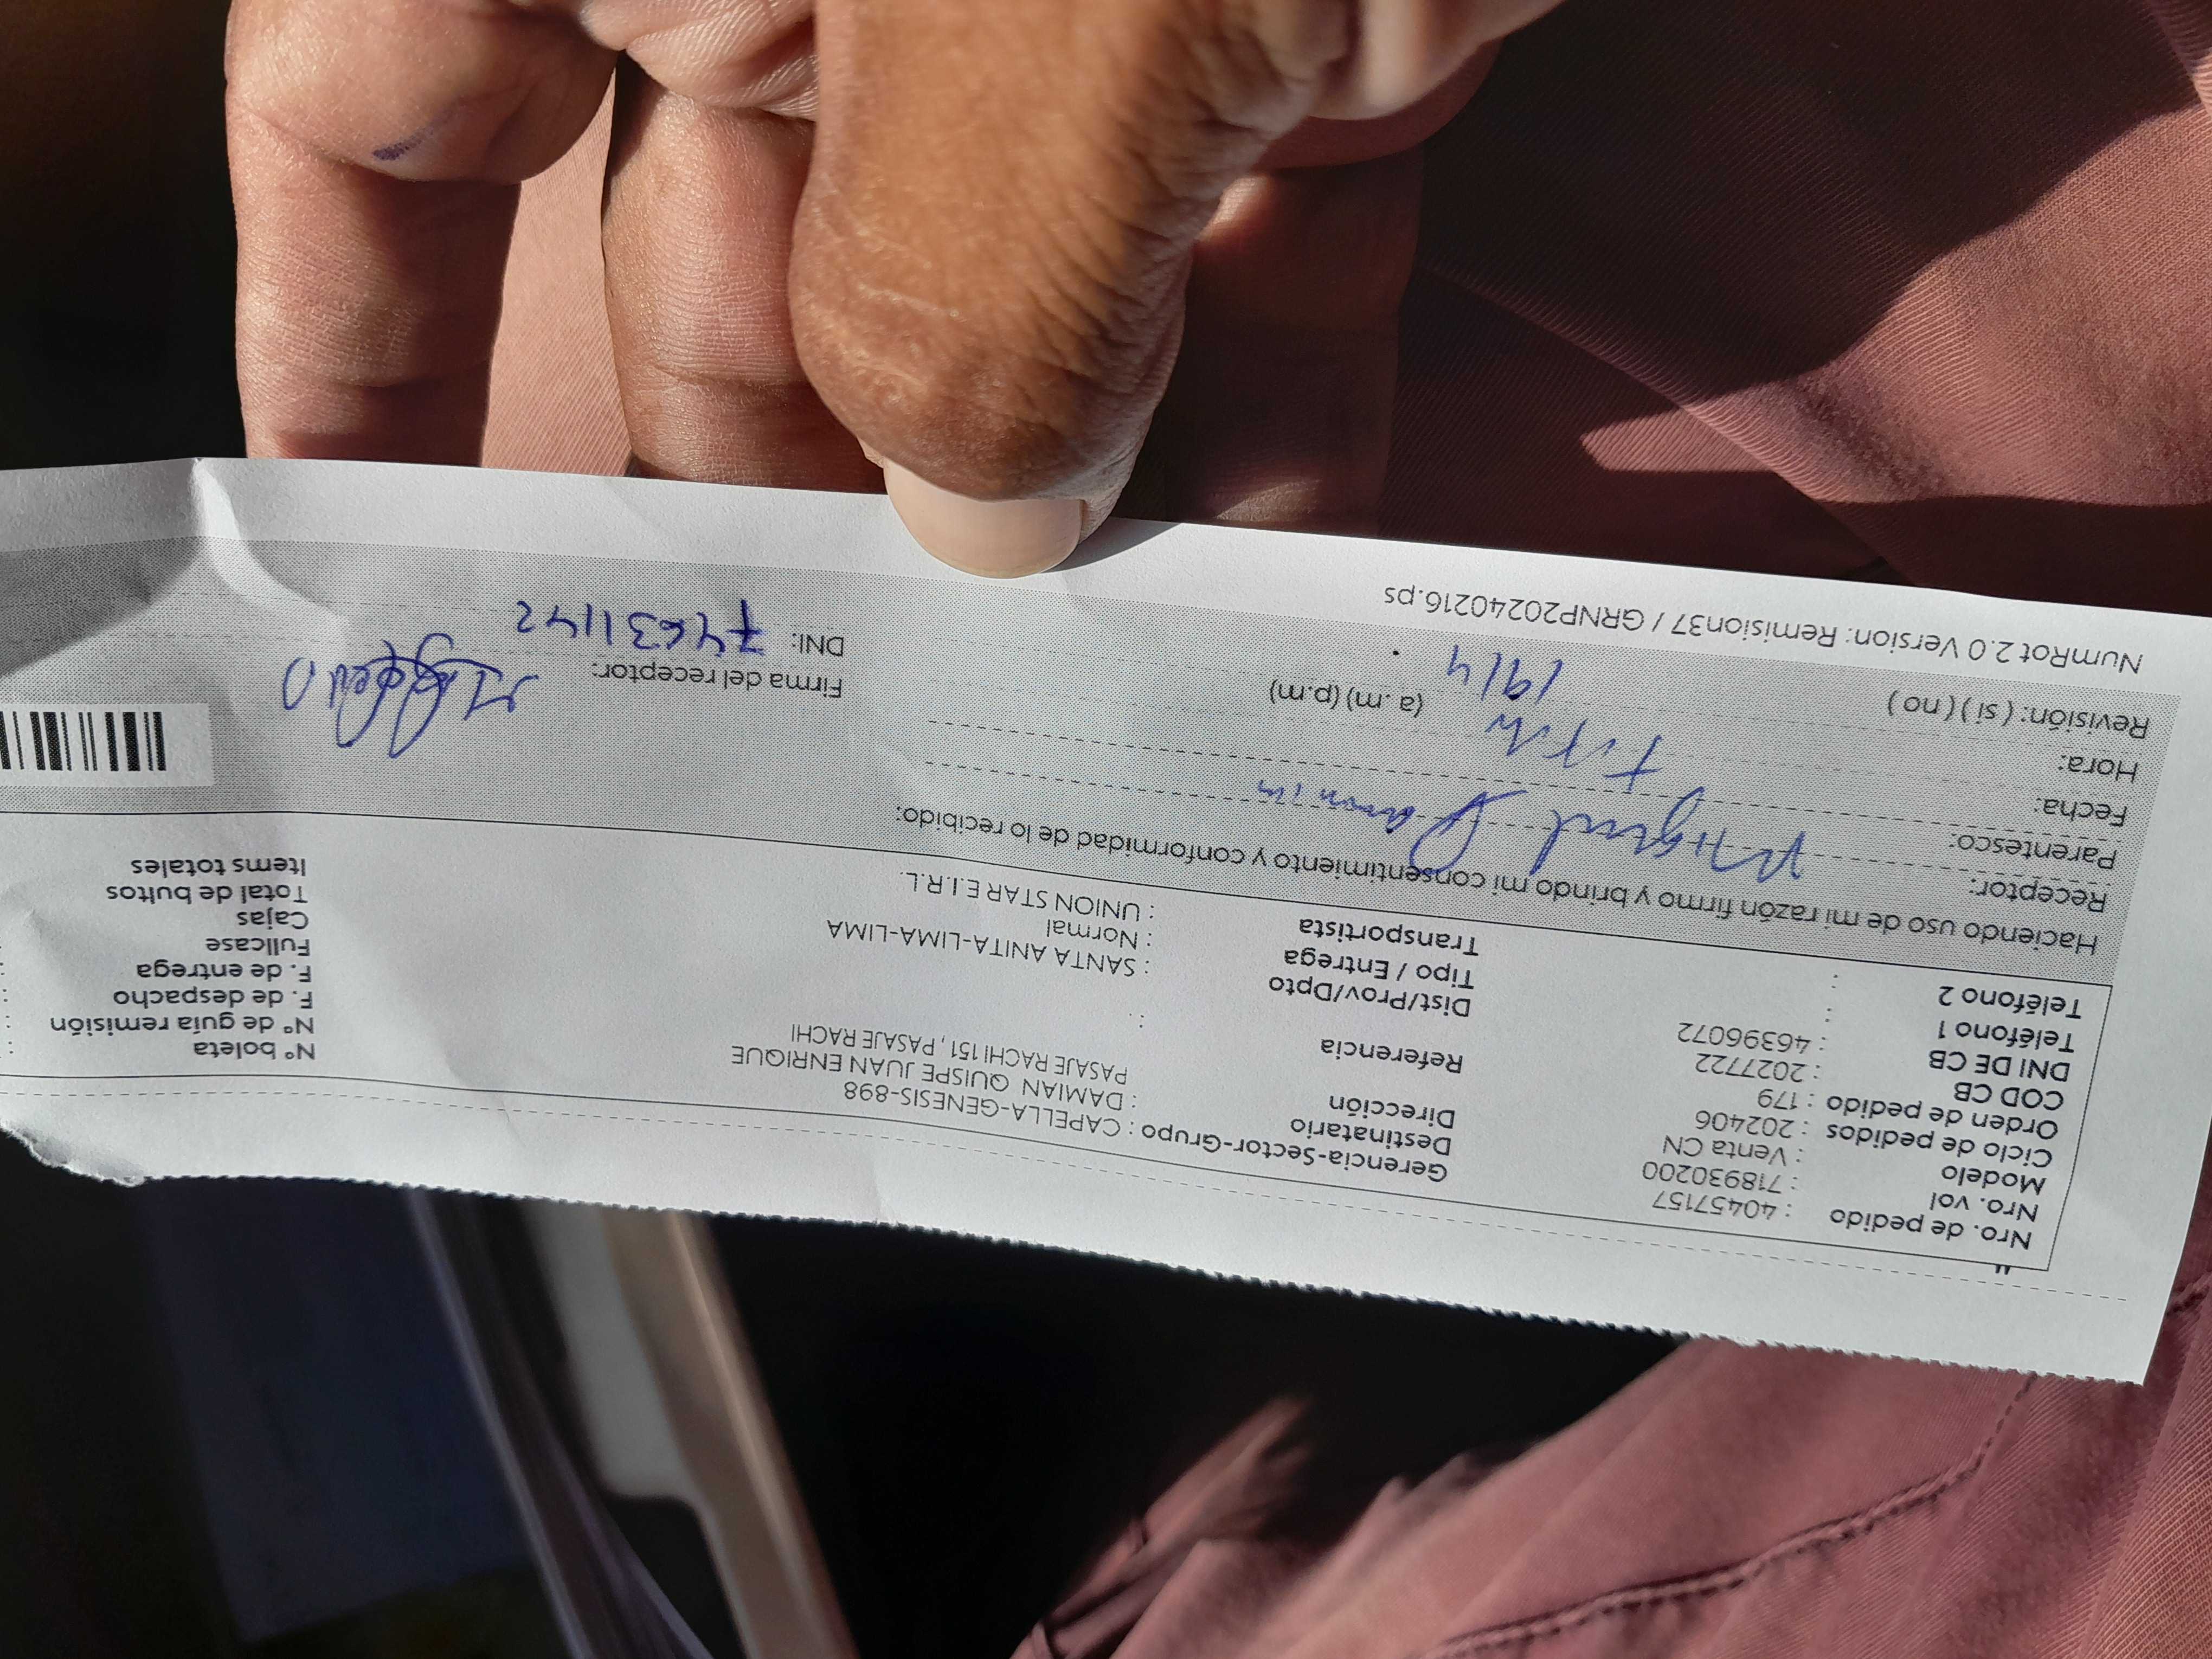 Nro. de pedido : 40457157
Nro. vol : 718930200
Modelo : Venta CN
Ciclo de pedidos : 202406
Orden de pedido : 179
COD CB : 2027722
DNI DE CB : 46396072
Teléfono 1 :
Teléfono 2 :
Gerencia-Sector-Grupo : CAPELLA-GENESIS-898
Destinatario : DAMIAN QUISPE JUAN ENRIQUE
Dirección PASAJE RACHI 151 , PASAJE RACHI
Referencia :
Dist/Prov/Dpto : SANTA ANITA-LIMA-LIMA
Tipo / Entrega : Normal
Transportista : UNION STAR E.I.R.L.
N° boleta :
N° de guía remisión :
F. de despacho :
F. de entrega
Fullcase
Cajas
Total de bultos
Items totales
Haciendo uso de mi razón firmo y brindo mi consentimiento y conformidad de lo recibido:
Receptor: Miguel
Parentesco:
Fecha:
Hora: 1914 (a. m) (p.m)
Revisión: ( si ) ( no )
Firma del receptor:
DNI: 74631142
NumRot 2.0 Version: Remision37 / GRNP20240216.ps